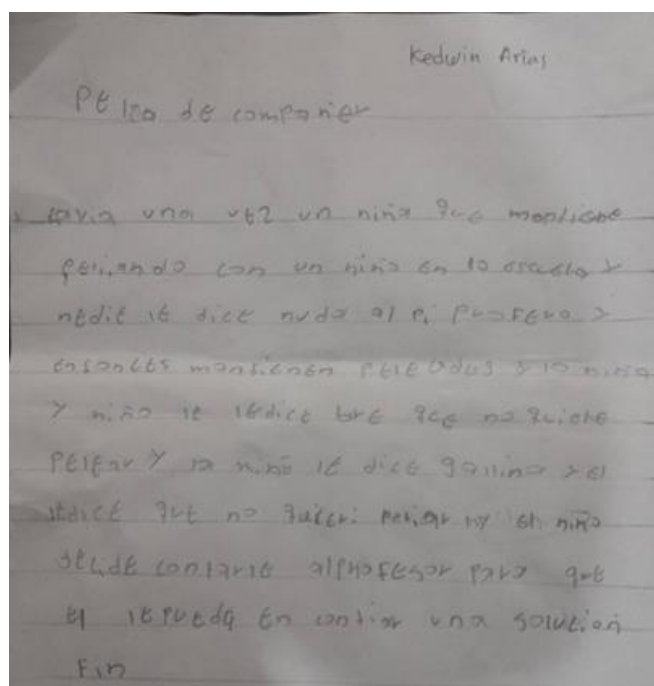 Kedwin Arias
Pelea de compañer
avia una vez un niña que mantiene
peliando con un niño en la escuela y
nedie le dice nada al pi profero y
ensonces mansienen y la niña
y niño le le dice que no quiere
pelear y la niño le dice gallina y el
le dice que no peliar y el niño
contarle al profesor para que
el le pueda en contrar una solution
Fin